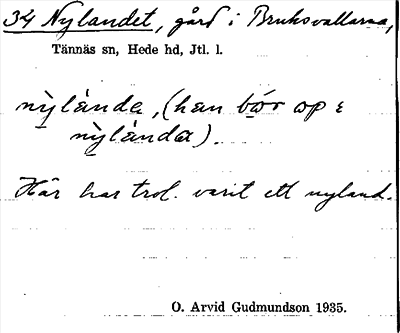 34 Nylandet, gård i Bruksvallarna,
Tännäs sn, Hede hd, Jtl. l.
nỳlánda, (han bór op ɛ
nỳlánda).
Här har trol. varit ett nyland.
O. Arvid Gudmundson 1935.